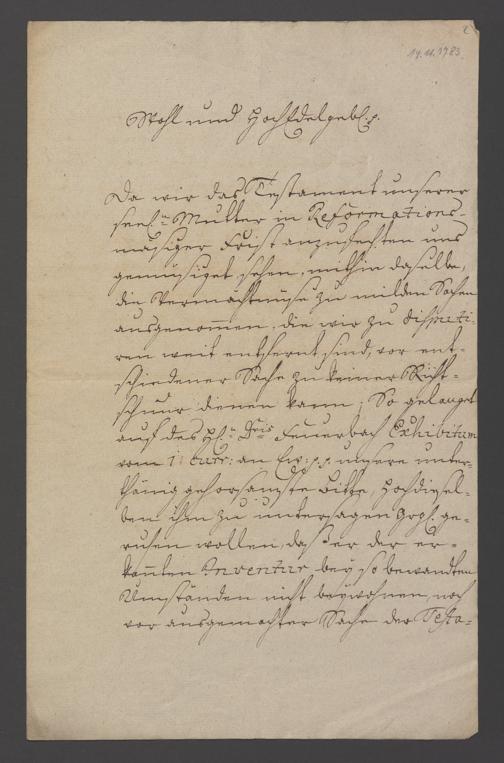 2
14.11.1783
Wohl und HochEdelgebl. p.
Da wir das Testament unserer
seel.n Mutter in Reformations-
mäsiger Frist anzufechten uns
gemüsiget sehen, mithin dasselbe,
die Vermächtnüße zu milden Sachen
ausgenommen, die wir zu disputi-
ren weit entfernt sind, vor ent-
schiedener Sache zu keiner Richt-
schnur dienen kann; So gelanget
auf des H.n Dris Feuerbach Exhibitum
vom 11 curr: an Ew. p. p. unsere unter-
thänig gehorsamste Bitte, Hochdiesel-
ben ihm zu untersagen Grosg. ge-
ruhen wollen, daß er der er-
kannten Inventur bey so bewandten
Umständen nicht beywohnen, noch
vor ausgemachter Sache der Testa-